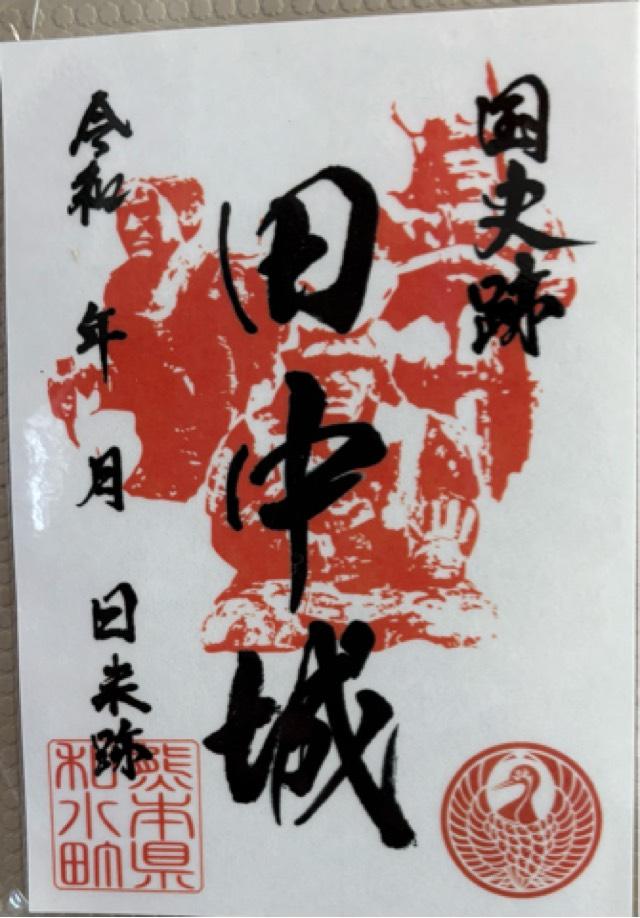 国史跡
田中城
令和 年 月 日来跡
熊本県
和水町